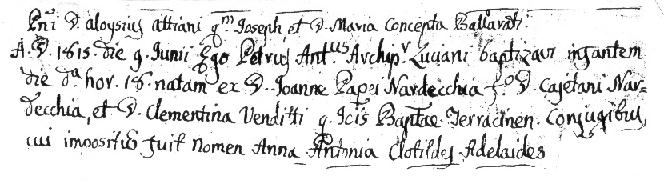 Pñi D. Aloysius Attiani qm Joseph et D. Maria Concepta Ballardi
A. D. 1815 die 9 Junii Ego Petrus Antus Archipr Zuvani baptizavi infantem
die da hor. 18. natam ex D. Joanne Papei Nardecchia fo D. Cajetani Nar=
decchia, et D. Clementina Venditti q Jcis Baptae Terracinen. Conjugibus,
cui impositus fuit nomen Anna Antonia Clotildes Adelaides